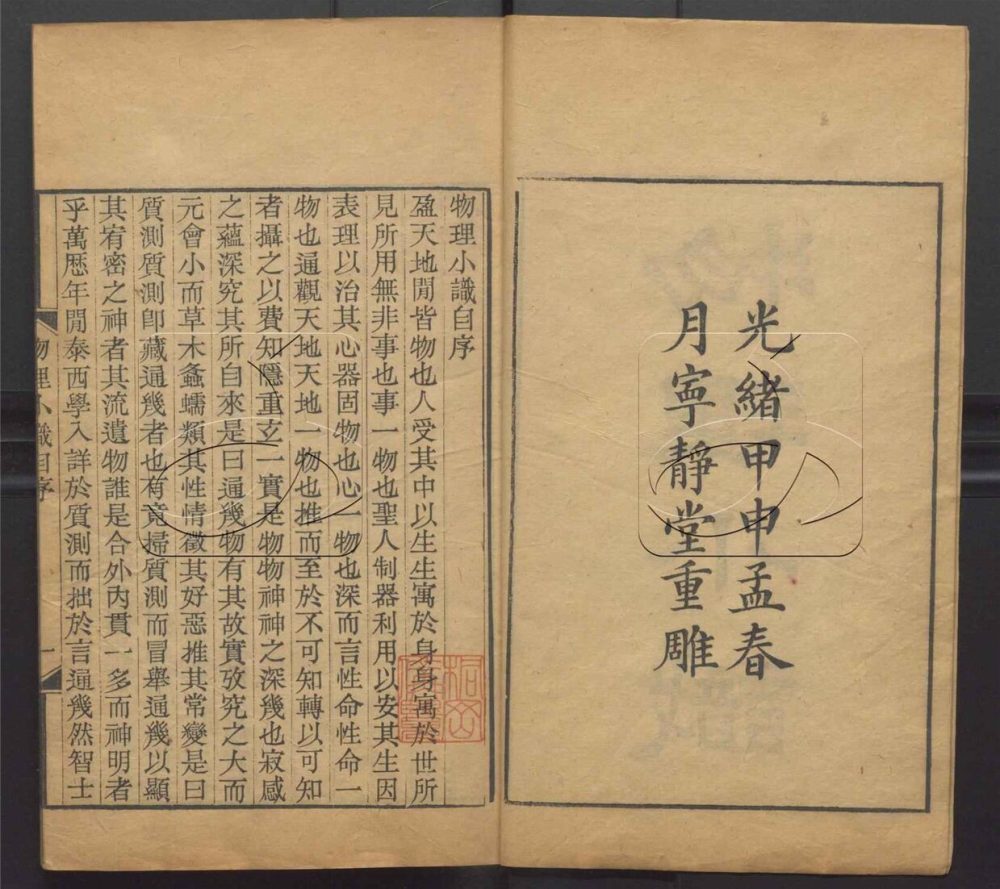 光緒甲申孟春
月寧靜堂重雕
物理小識自序
盈天地閒皆物也人受其中以生生寓於身身寓於世所
見所用無非事也事一物也聖人制器利用以安其生因
表理以治其心器固物也心一物也深而言性命性命一
物也通觀天地天地一物也推而至於不可知轉以可知
者攝之以費知隱重玄一實是物物神神之深幾也寂感
之蘊深究其所自來是曰通幾物有其故實攷究之大而
元會小而草木螽蠕類其性情徵其好惡推其常變是曰
質測質測卽藏通幾者也有竟掃質測而冒舉通幾以顯
其宥密之神者其流遺物誰是合外內貫一多而神明者
乎萬歷年閒泰西學入詳於質測而拙於言通幾然智士
物理小識自序
一